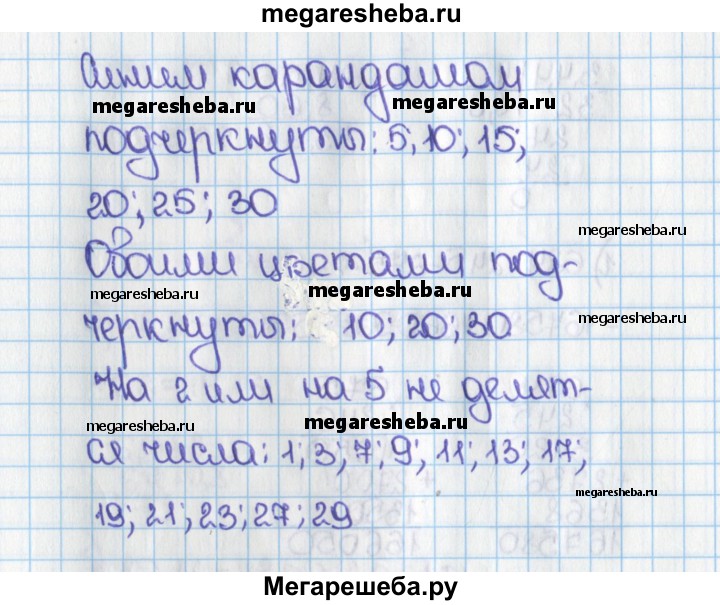 megaresheba.ru
Синим карандашом
megaresheba.ru megaresheba.ru
подчеркнуты: 5; 10; 15;
20; 25; 30
megaresheba.ru
Обоими цветами под-
megaresheba.ru megaresheba.ru
черкнуты: 10; 20; 30
megaresheba.ru
На 2 или на 5 не делят-
megaresheba.ru megaresheba.ru
ся числа: 1; 3; 7; 9; 11; 13; 17;
megaresheba.ru
19; 21; 23; 27; 29
Мегарешеба.ру